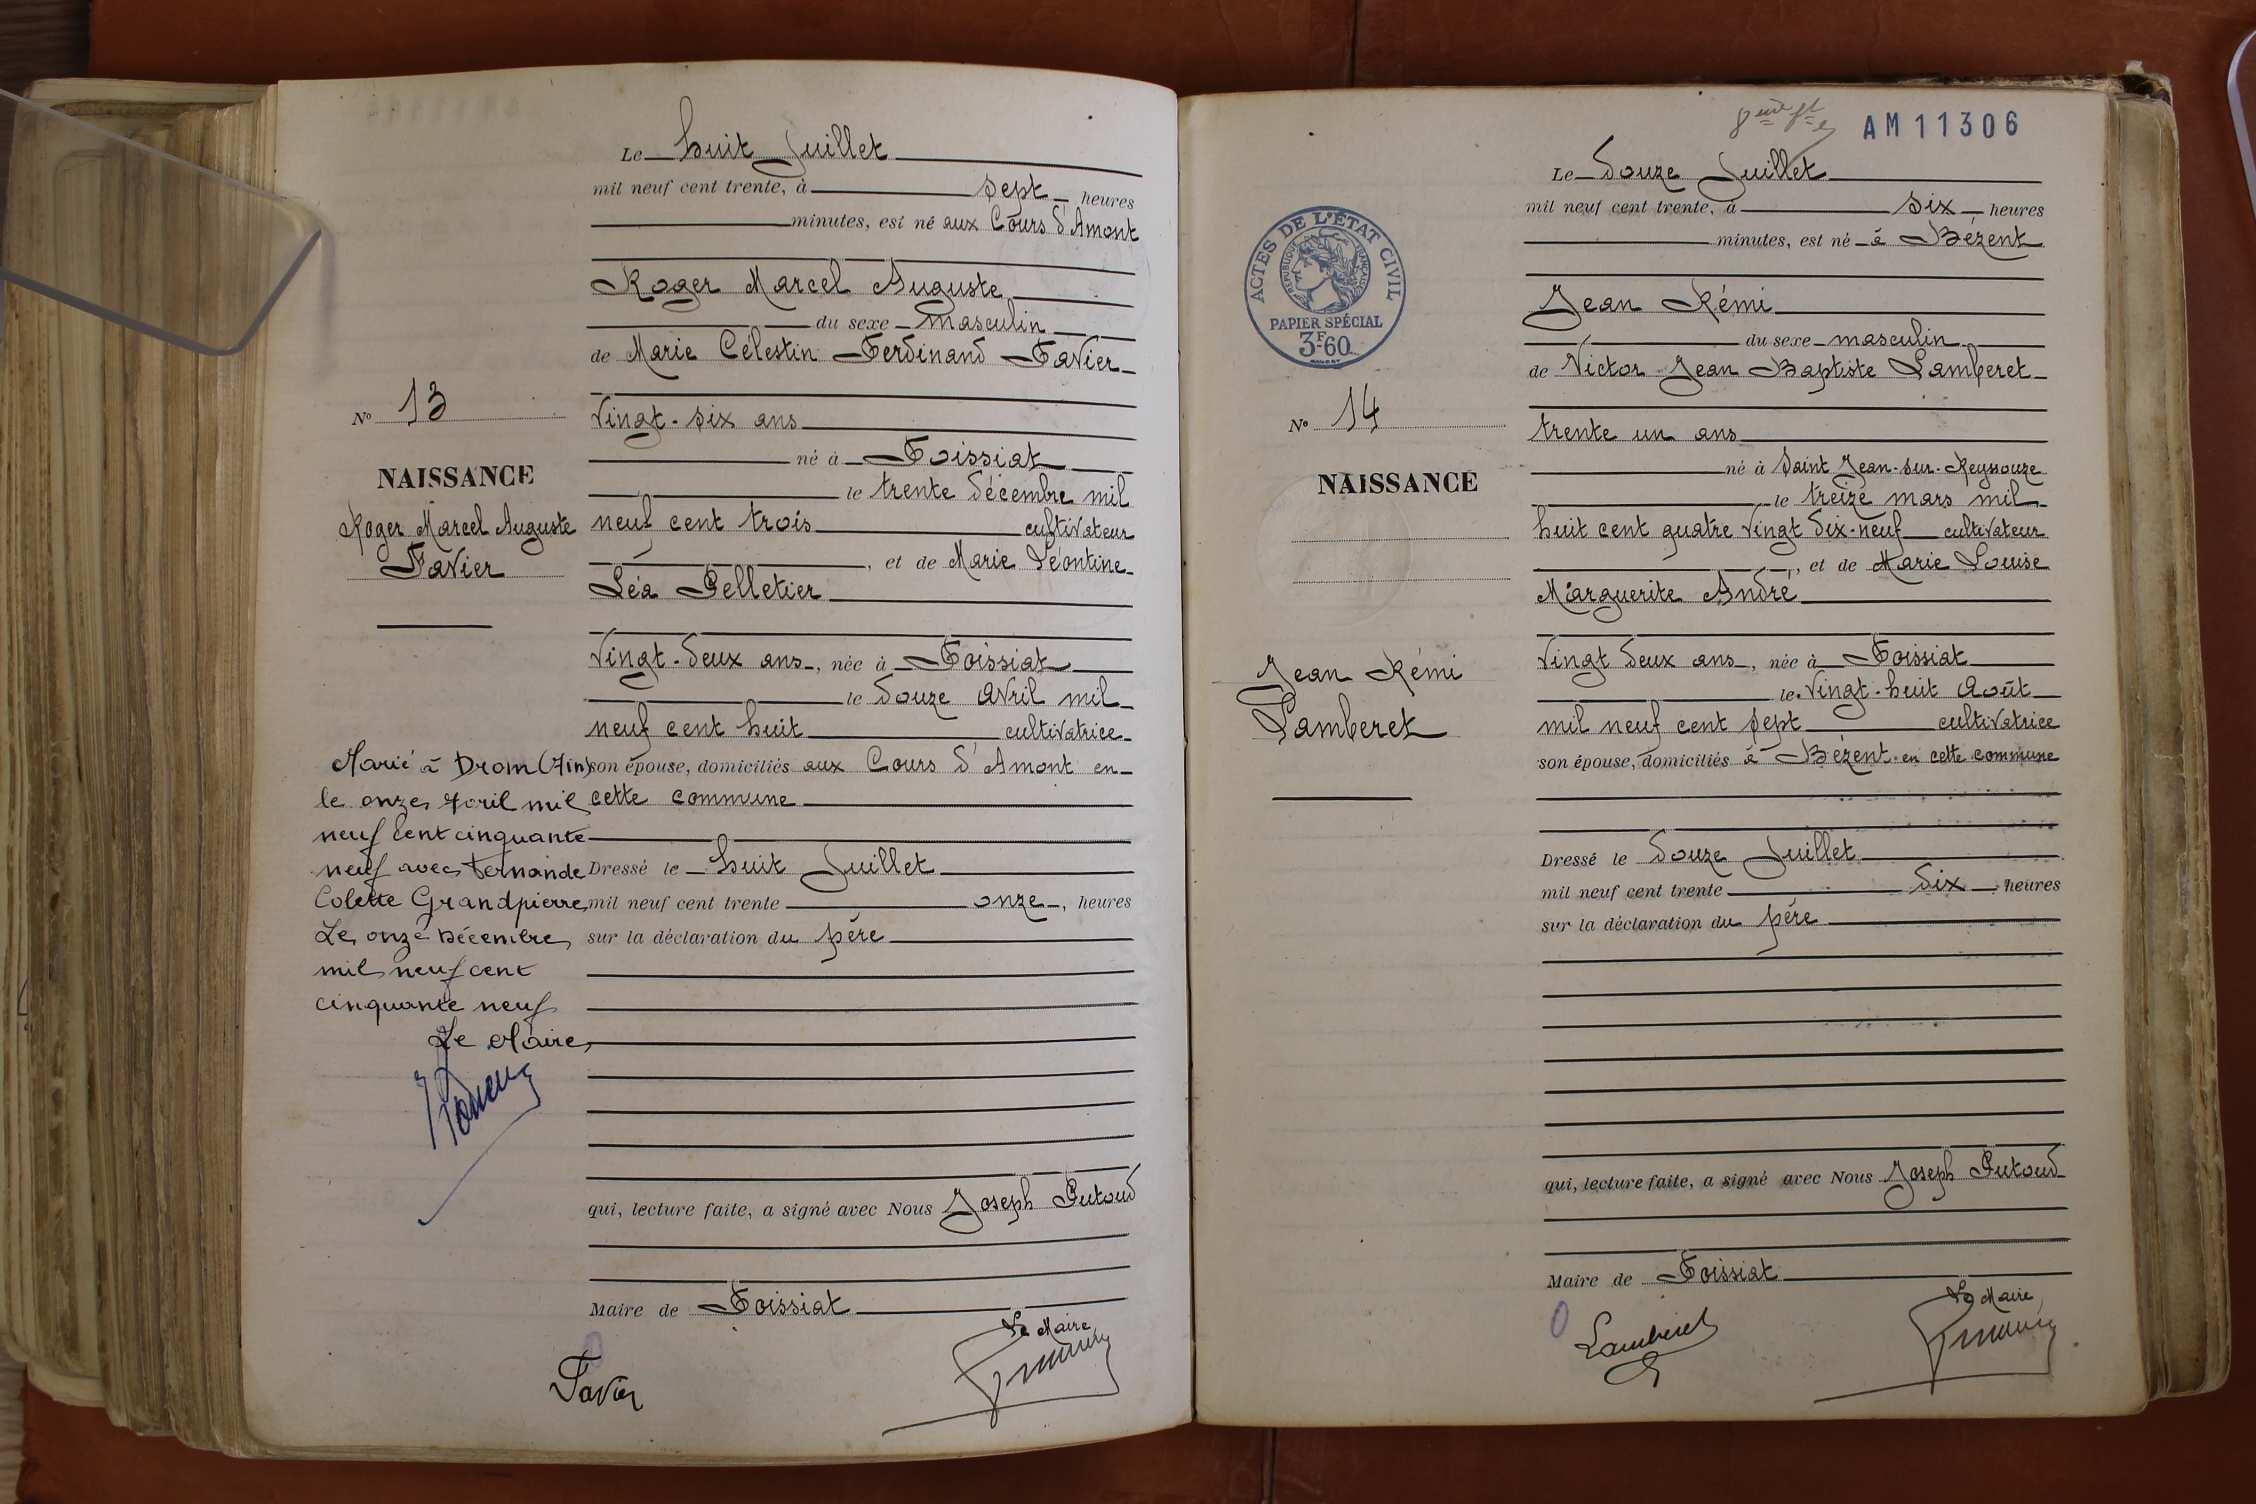 Le huit Juillet
mil neuf cent trente, à sept heures
minutes, est né aux Cours d'Amont
Roger Marcel Auguste
du sexe masculin
de Marie Célestin Ferdinand Favier
Vingt-six ans
né à Foissiat
le trente décembre mil
neuf cent trois cultivateur
, et de Marie Léontine
Léa Pelletier
Vingt-deux ans, née à Foissiat
le douze Avril mil
neuf cent huit cultivatrice
son épouse, domiciliés aux Cours d'Amont en
cette commune
Dressé le huit Juillet
mil neuf cent trente onze, heures
sur la déclaration du père
qui, lecture faite, a signé avec Nous Joseph Putoud
Maire de Foissiat
Le Maire,
Favier
No 13
NAISSANCE
Roger Marcel Auguste
Favier
Marié à Drom (Ain)
le onze Avril mil
neuf cent cinquante
neuf avec Fernande
Colette Grandpierre,
Le onze Décembre
mil neuf cent
cinquante neuf
Le Maire,
AM11306
Le douze Juillet
mil neuf cent trente, à six heures
minutes, est né à Bézent
Jean Rémi
du sexe masculin
de Victor Jean Baptiste Lamberet
trente un ans
né à Saint Jean-sur-Reyssouze
le treize mars mil
huit cent quatre vingt dix-neuf cultivateur
, et de Marie Louise
Marguerite André
Vingt deux ans, née à Foissiat
le Vingt-huit Août
mil neuf cent sept cultivatrice
son épouse, domiciliés à Bézent en cette commune
Dressé le douze Juillet
mil neuf cent trente dix heures
sur la déclaration du père
qui, lecture faite, a signé avec Nous Joseph Putoud
Maire de Foissiat
Le Maire,
Lamberet
ACTES DE L'ETAT CIVIL
REPUBLIQUE FRANÇAISE
PAPIER SPÉCIAL
3F60
No 14
NAISSANCE
Jean Rémi
Lamberet